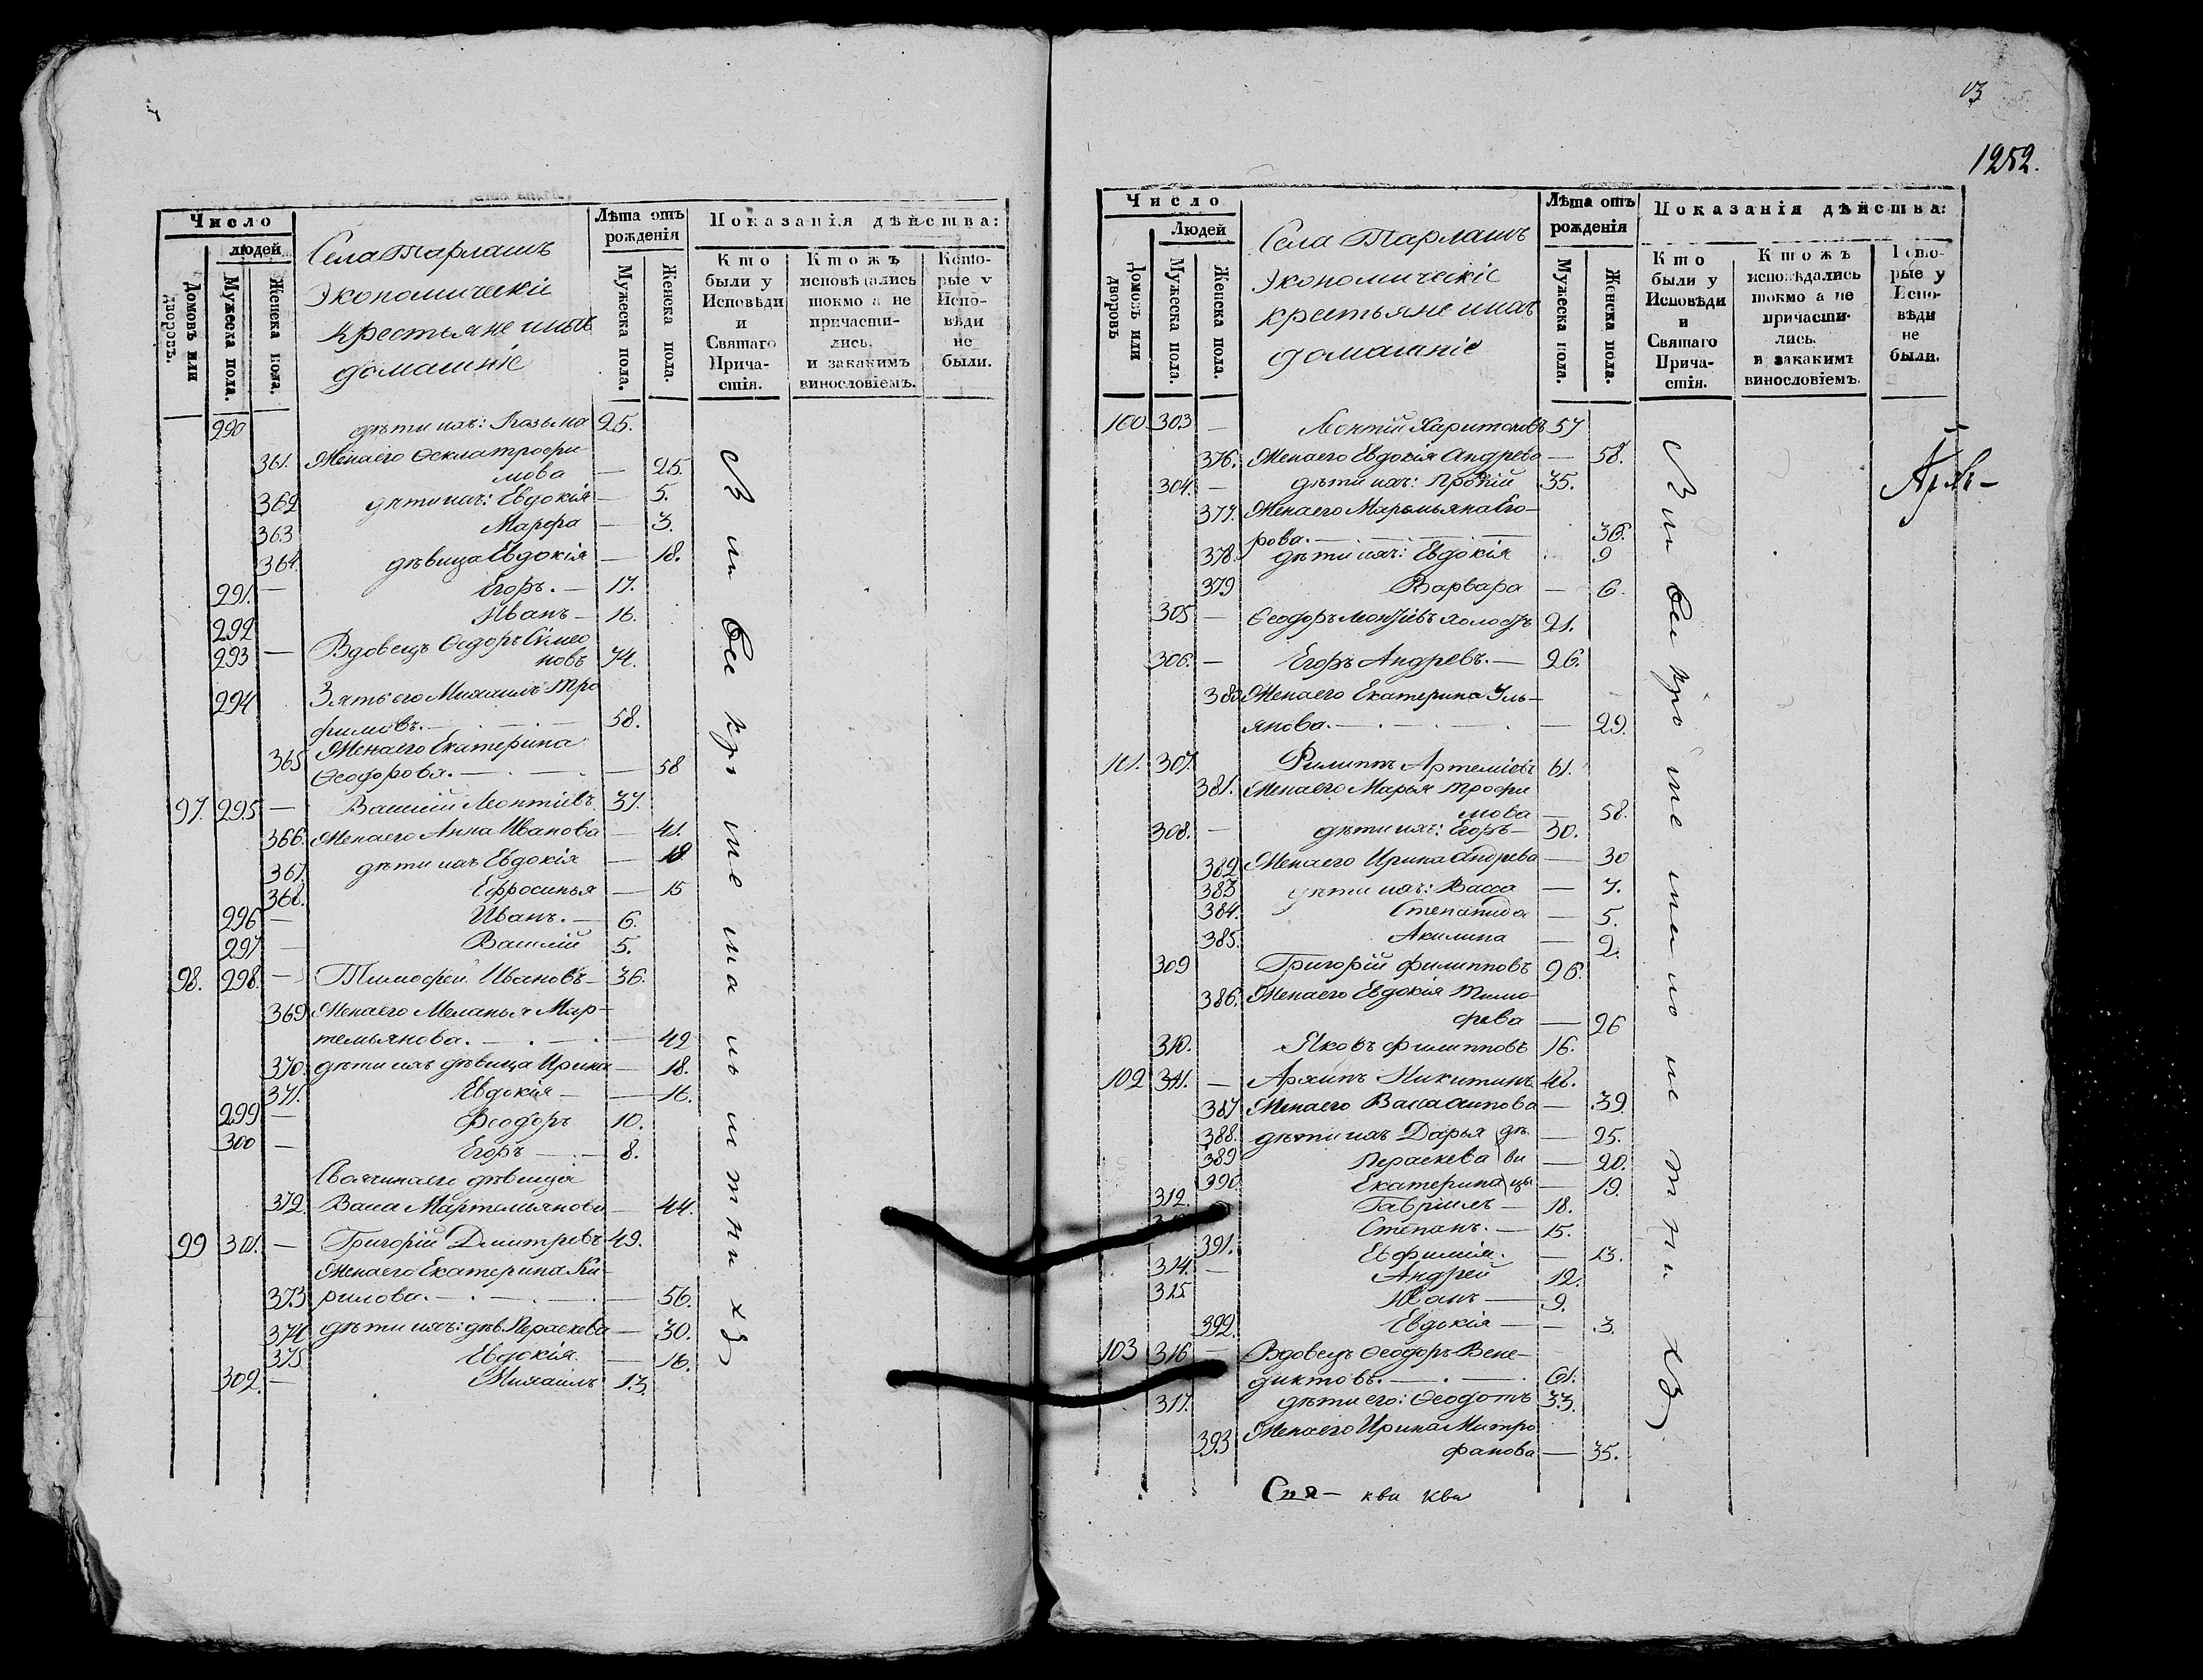 Число
людей
Домовъ или дворовъ.
Мужеска пола.
Женска пола.
Села Тарлашъ
экономическіе
крестьяне и ихъ
домашніе
Лѣта отъ
рожденія
Мужеска пола.
Женска пола.
Показанія дѣйства:
Кто
были у
Исповѣди
и
Святаго
Прича-
стія.
Ктожъ
исповѣдались
токмо а не
причасти-
лись.
и закакимъ
винословіемъ.
Кото-
рые у
Испо-
вѣди
не
были.
290 дѣти ихъ: Козьма 25.
361. Жена его Оекла трофи
мова — 25
362 дѣти ихъ: Евдокія — 5.
363 Марфа — 3.
364. дѣвица Евдокія — 18.
291. — Егоръ. — 17.
292 Иванъ — 16.
293 — Вдовецъ Ѳедоръ Симео
новъ 74.
294 Зять его Михаилъ Тро
фимовъ. — 58.
365 Жена его Екатерина
Ѳеодорова. — 58
97. 295 — Василій Леонтіевъ 37.
366. Жена его Анна Иванова — 41.
367. дѣти ихъ Евдокія — 18
368. Ефросинья — 15
296 — Иванъ. — 6.
297 — Василій 5.
98. 298. — Тимофей Ивановъ — 36.
369 Жена его Меланья Мар-
темьянова. — 42
370. дѣти ихъ дѣвица Ирина — 18.
371. Евдокія — 16.
299 — Ѳеодоръ 10.
300 — Егоръ — 8.
Своячина его дѣвица
372. Васса Мартемьянова — 44.
99 301. — Григорій Дмитревъ 49.
Жена его Екатерина Ки-
373 рилова. — 56.
374 дѣти ихъ: дѣв. Пераскева — 30.
375 Евдокія. — 16.
302. — Михаилъ 13.
1252.
Число
Людей
Домовъ или дворовъ
Мужеска пола.
Женска пола.
Села Тарлашъ
экономическіе
крестьяне и ихъ
домашніе
Лѣта отъ
рожденія
Мужеска пола.
Женска пола.
Показанія дѣйства:
Кто
были у
Исповѣди
и
Святаго
Прича-
стія.
Ктожъ
исповѣдались
токмо а не
причасти-
лись.
и закакимъ
винословіемъ.
Кото-
рые у
Испо-
вѣди
не
были.
100 303 — Леонтій Харитоновъ 57
376. Жена его Евдокія Андрева — 58.
304. — дѣти ихъ: 35.
377. Жена его Марѳмьяна Его-
рова. — 36.
378. дѣти ихъ: Евдокія 9
379 Варвара — 6.
305 — Ѳеодоръ Леонтіевъ холостъ 21.
306. — Егоръ Андревъ. — 26.
380 Жена его Екатерина Уль-
янова. — 29.
101. 307. Филиппъ Артеміевъ 61.
381. Жена его Марья Трофи
мова — 58.
308. — дѣти ихъ: Егоръ — 30.
382 Жена его Ирина Андрева — 30
383 дѣти ихъ: Васса — 7.
384. Степанида — 5.
385. Акилина — 2.
309 Григорій Филипповъ 26.
386. Жена его Евдокія Тимо-
фева — 26
310. Яковъ Филипповъ 16.
102 311. — Архипъ Никитинъ 48.
387 Жена его Васса Осипова — 39.
388. дѣти ихъ Дарья дѣ — 25.
389 Пераскева ви — 20.
390. Екатерина цы — 19.
312. Гавріилъ — 18.
Степанъ. — 15.
391. Евфимія. — 13.
314. — Андрей 12.
315 Иванъ — 9.
392. Евдокія — 3.
103 316 — Вдовецъ Ѳеодоръ Вене-
диктовъ. — 61.
317. дѣти его: Ѳеодотъ 33.
393 Жена его Ирина Митро
фанова — 35.